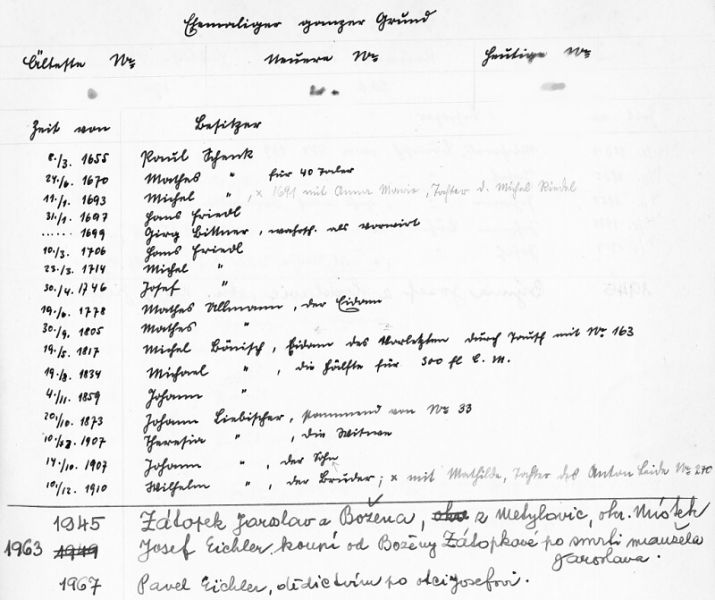 Ehemaliger ganzer Grund
Älteste № Neuere № Heutige №
Zeit von Besitzer
8./3. 1655 Paul Schenk
24./6. 1670 Mathes " für 40 Taler
11./1. 1693 Michel ", × 1691 mit Anna Marie, Tochter d. Michel Riedel
31./1. 1697 Hans Friedl
...... 1699 Girg Bittner, wahrsch. als Vorwirt
10./3. 1706 Hans Friedl
23./3. 1714 Michel "
30./4. 1746 Josef "
19./6. 1778 Mathes Ullmann, der Eidam
30./9. 1805 Mathes "
19./5. 1817 Michel Bönisch, Eidam des Vorletzten durch Tausch mit № 163
19./8. 1834 Michael ", die Hälfte für 300 fl C. M.
4./11. 1859 Johann "
20./10. 1873 Johann Liebischer, stammend von № 33
10./12. 1907 Theresia ", die Witwe
14./10. 1907 Johann ", der Sohn
10./12. 1910 Wilhelm ", der Bruder; × mit Mathilde, Tochter des Anton Leide № 270
1945 Zátopek Jaroslav a Božena, z Metylovic, okr. Místek
1963 1949 Josef Eichler koupí od Boženy Zátopkové po smrti manžela
Jaroslava.
1967 Pavel Eichler, dědictvím po otci Josefovi.